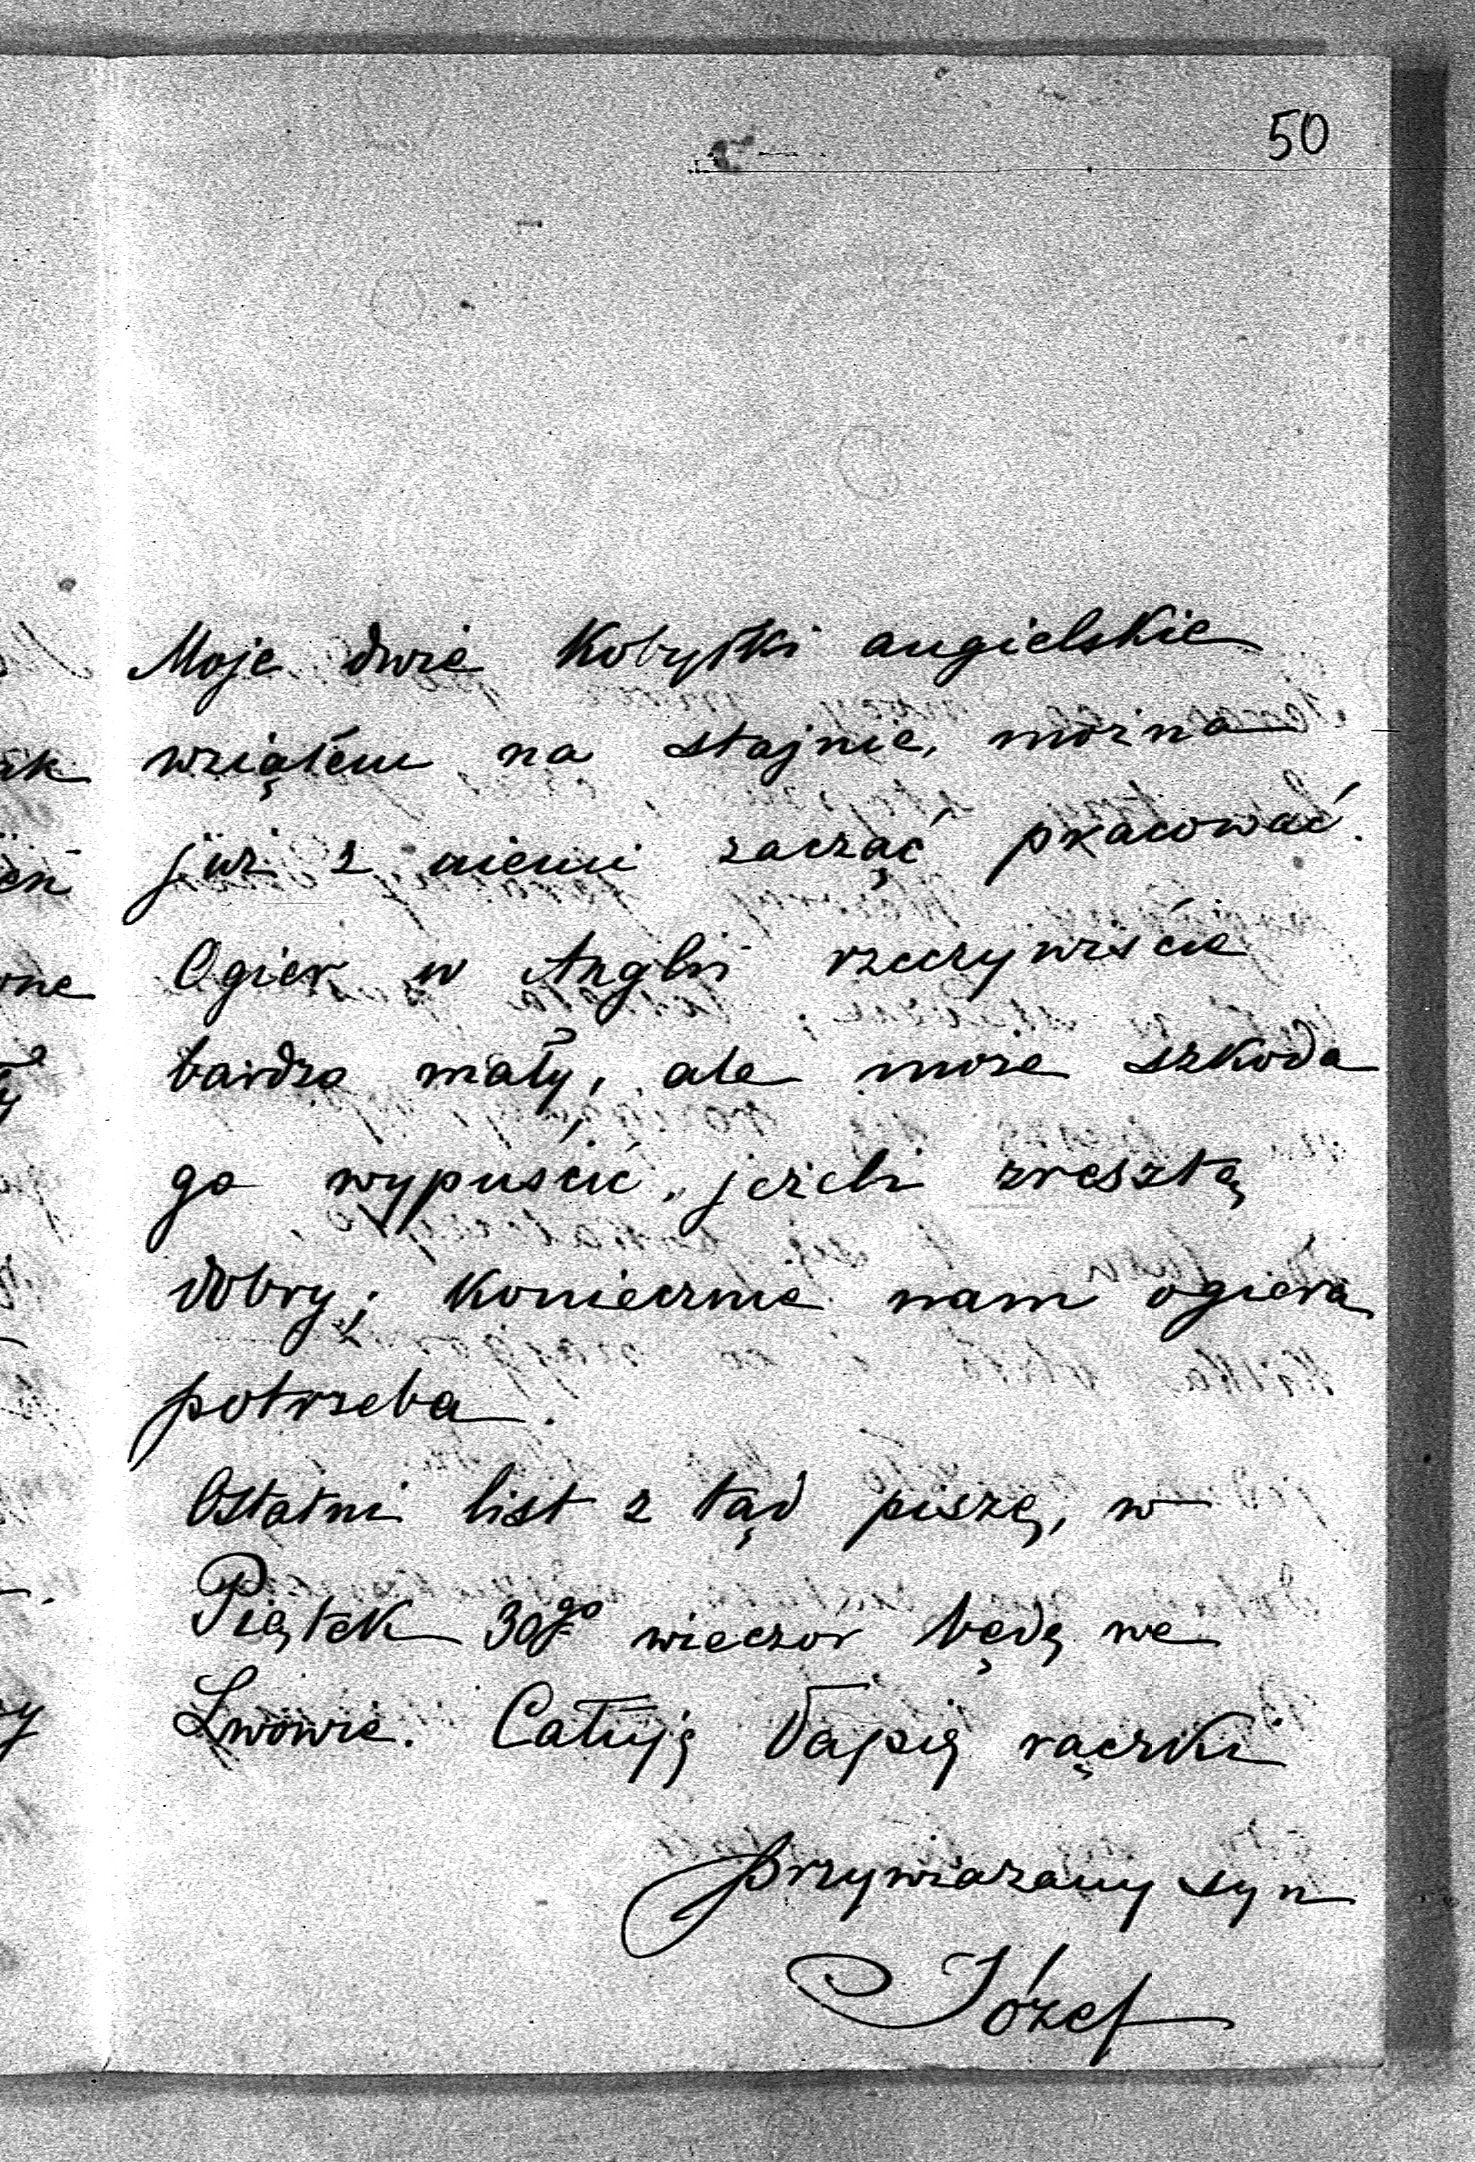 50
Moje dwie Kobyłki angielskie
wziąłem na stajnie, można
już z niemi zacząć pracować.
Ogier w Anglii rzeczywiście
bardzo mały, ale może szkoda
go wypuścić, jeżeli zresztą
dobry; Koniecznie nam ogiera
potrzeba.
Ostatni list z tąd piszę, w
Piątek 30go wieczor będę we
Lwowie. Całuję Papię rączki
przywiązany syn
Józef